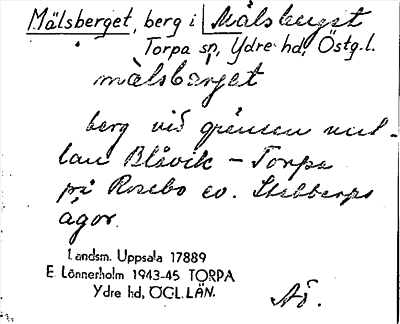 Mälsberget, berg i Mälsberget
Torpa sn, Ydre hd, Östg.l.
mälsbärjet
berg vid gränsen mel-
lan Blåvik – Torpa
på Rosebo ev. Stabbarps
ägor.
Landsm. Uppsala 17889
E. Lönnerholm 1943-45 TORPA
Ydre hd, ÖGL.LÄN.